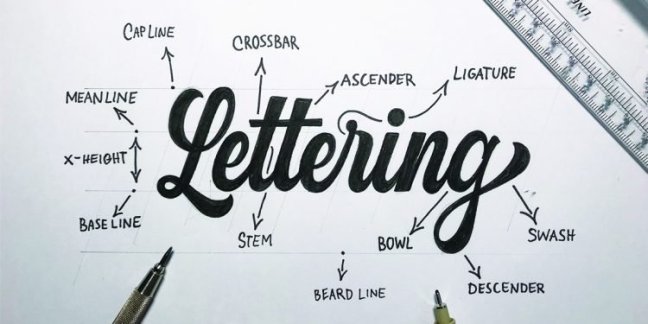 CAP LINE
CROSSBAR
ASCENDER
LIGATURE
MEANLINE
X-HEIGHT
BASELINE
Lettering
STEM
BOWL
SWASH
BEARD LINE
DESCENDER